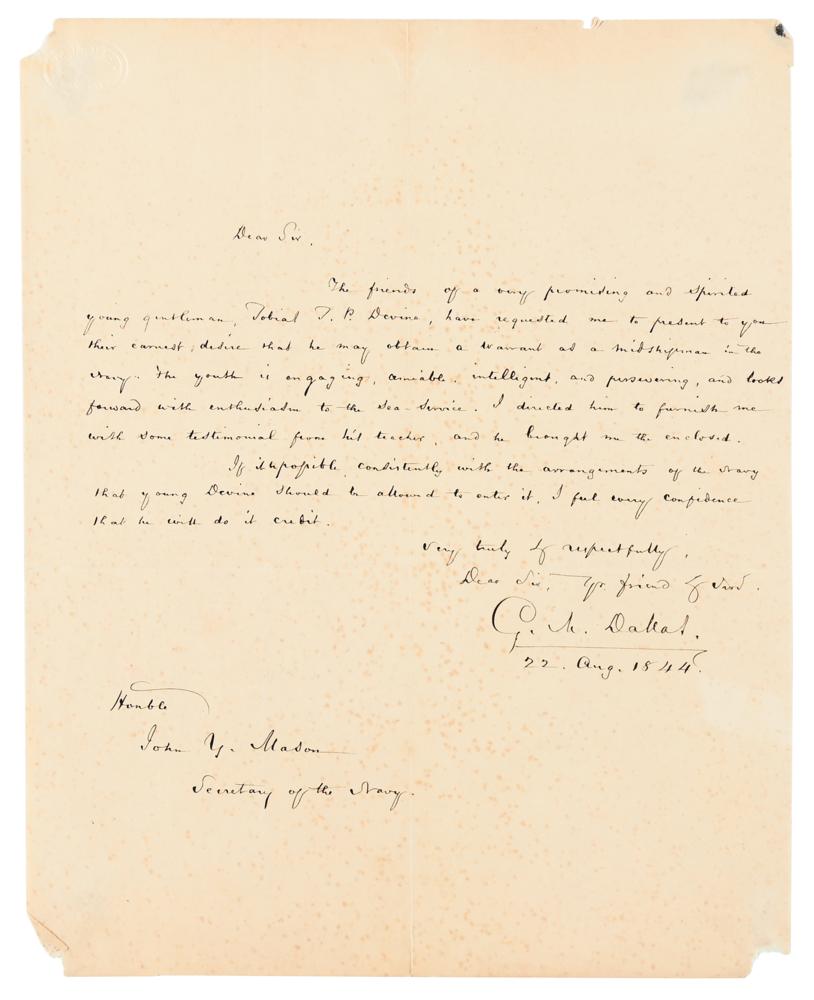 Dear Sir,
The friends of a very promising and spirited
young gentleman, Tobias T. P. Devine, have requested me to present to you
their earnest desire that he may obtain a warrant as a midshipman in the
Navy. The youth is engaging, amiable, intelligent, and persevering, and looks
forward with enthusiasm to the sea service. I directed him to furnish me
with some testimonial from his teacher, and he brought me the enclosed.
If it is possible, consistently with the arrangements of the Navy
that young Devine should be allowed to enter it, I feel every confidence
that he will do it credit.
Very truly & respectfully,
Dear Sir, Yr. friend & Servt.
G. M. Dallas.
22. Aug. 1844.
Honble
John Y. Mason
Secretary of the Navy.